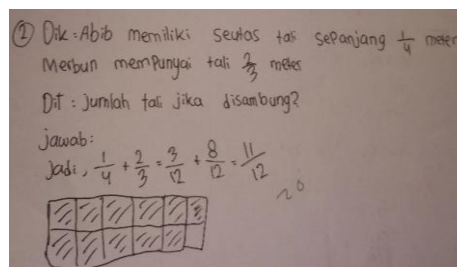 ② Dik : Abib memiliki seutas tali sepanjang 1/4 meter
Merbun mempunyai tali 2/3 meter
Dit : Jumlah tali jika disambung?
jawab:
jadi, 1/4 + 2/3 = 3/12 + 8/12 = 11/12
20